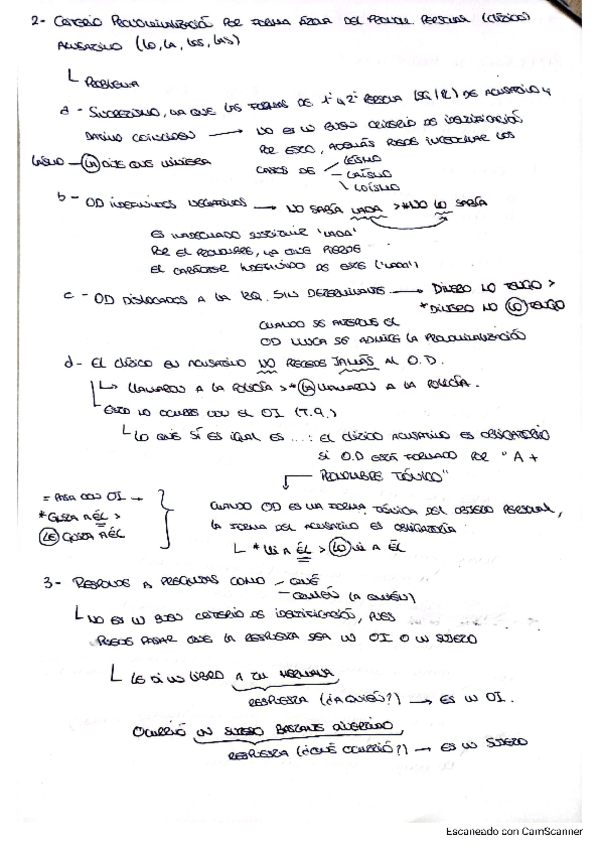 2- CRITERIO PRONOMINALIZACIÓN POR FORMA ÁTONA DEL PRONOM. PERSONAL (CLÍTICO)
ACUSATIVO (LO, LA, LOS, LAS)
PROBLEMA
a- SINCRETISMO, YA QUE LAS FORMAS DE 1ª y 2ª PERSONA (SG/PL) DE ACUSATIVO y
DATIVO COINCIDEN → NO ES UN BUEN CRITERIO DE IDENTIFICACIÓN
POR ESTO, ADEMÁS PUEDE INVOLUCRAR LOS
CASOS DE LEÍSMO
LAÍSMO
LOÍSMO
LAÍSMO — LA DIJE QUE VINIERA
b- OD INDEFINIDOS NEGATIVOS → NO SABÍA NADA > *NO LO SABÍA
ES INADECUADO SUSTITUIR "NADA"
POR EL PRONOMBRE, YA QUE PIERDE
EL CARÁCTER INDEFINIDO DE ESTE ("NADA")
c- OD DISLOCADOS A LA IZQ. SIN DETERMINANTE → DINERO NO TENGO >
*DINERO NO LO TENGO
CUANDO SE ANTEPONE EL
OD NUNCA SE ADMITE LA PRONOMINALIZACIÓN
d- EL CLÍTICO EN ACUSATIVO NO PRECEDE JAMÁS AL O.D.
LLAMARON A LA POLICÍA > *LA LLAMARON A LA POLICÍA.
ESTO LO OCURRE CON EL OI (T.9.)
LO QUE SÍ ES IGUAL ES ...: EL CLÍTICO ACUSATIVO ES OBLIGATORIO
SI O.D ESTÁ FORMADO POR "A +
PRONOMBRE TÓNICO"
= PASA CON OI →
*GUSTA A ÉL >
LE GUSTA A ÉL
CUANDO OD ES UNA FORMA TÓNICA DEL PRONOM PERSONAL,
LA FORMA DEL ACUSATIVO ES OBLIGATORIA
*VI A ÉL > LO VI A ÉL
3- RESPONDE A PREGUNTAS COMO — QUÉ
— QUIÉN (A QUIÉN)
NO ES UN BUEN CRITERIO DE IDENTIFICACIÓN, PUES
PUEDE PASAR QUE LA RESPUESTA SEA UN OI O UN SUJETO
LE DI UN LIBRO A TU HERMANA
RESPUESTA (¿A QUIÉN?) → ES UN OI.
OCURRIÓ UN SUCESO BASTANTE DIVERTIDO
RESPUESTA (¿QUÉ OCURRIÓ?) → ES UN SUJETO
Escaneado con CamScanner